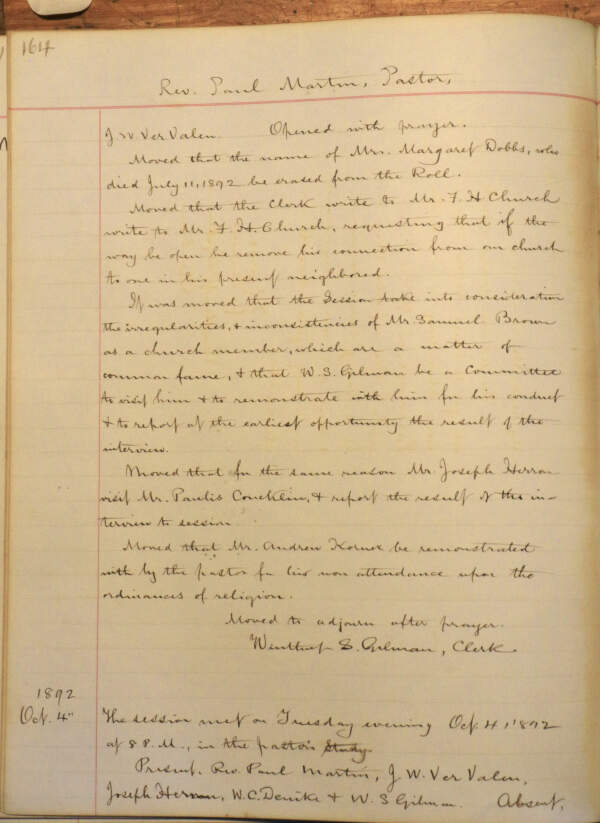 164
Rev. Paul Martin, Pastor,
J W Ver Valen. Opened with prayer.
Moved that the name of Mrs. Margaret Dobbs, who
died July 11, 1892 be erased from the Roll.
Moved that the Clerk write to Mr. F. H Church
write to Mr. F. H. Church, requesting that if the
way be open he remove his connection from our church
to one in his present neighbored.
It was moved that the Session take into consideration
the irregularities, & inconsistencies of Mr. Samuel Brown
as a church member, which are a matter of
common fame, & that W. S. Gilman be a Committee
to visit him & to remonstrate with him for his conduct
& to report at the earliest opportunity the result of the
interview.
Moved that for the same reason Mr. Joseph Herron
visit Mr. Paulis Conklin, & report the result of the in-
terview to session
Moved that Mr. Andrew be remonstrated
with by the pastor for his non attendance upon the
ordinances of religion.
Moved to adjourn after prayer.
Winthrop S. Gilman, Clerk.
1892
Oct. 4" The session met on Tuesday evening Oct. 4, 1892
at 8 P.M., in the pastor's study.
Present. Rev. Paul Martin, J. W. Ver Valen,
Joseph Herron, W. C. Denike & W. S Gilman. Absent,